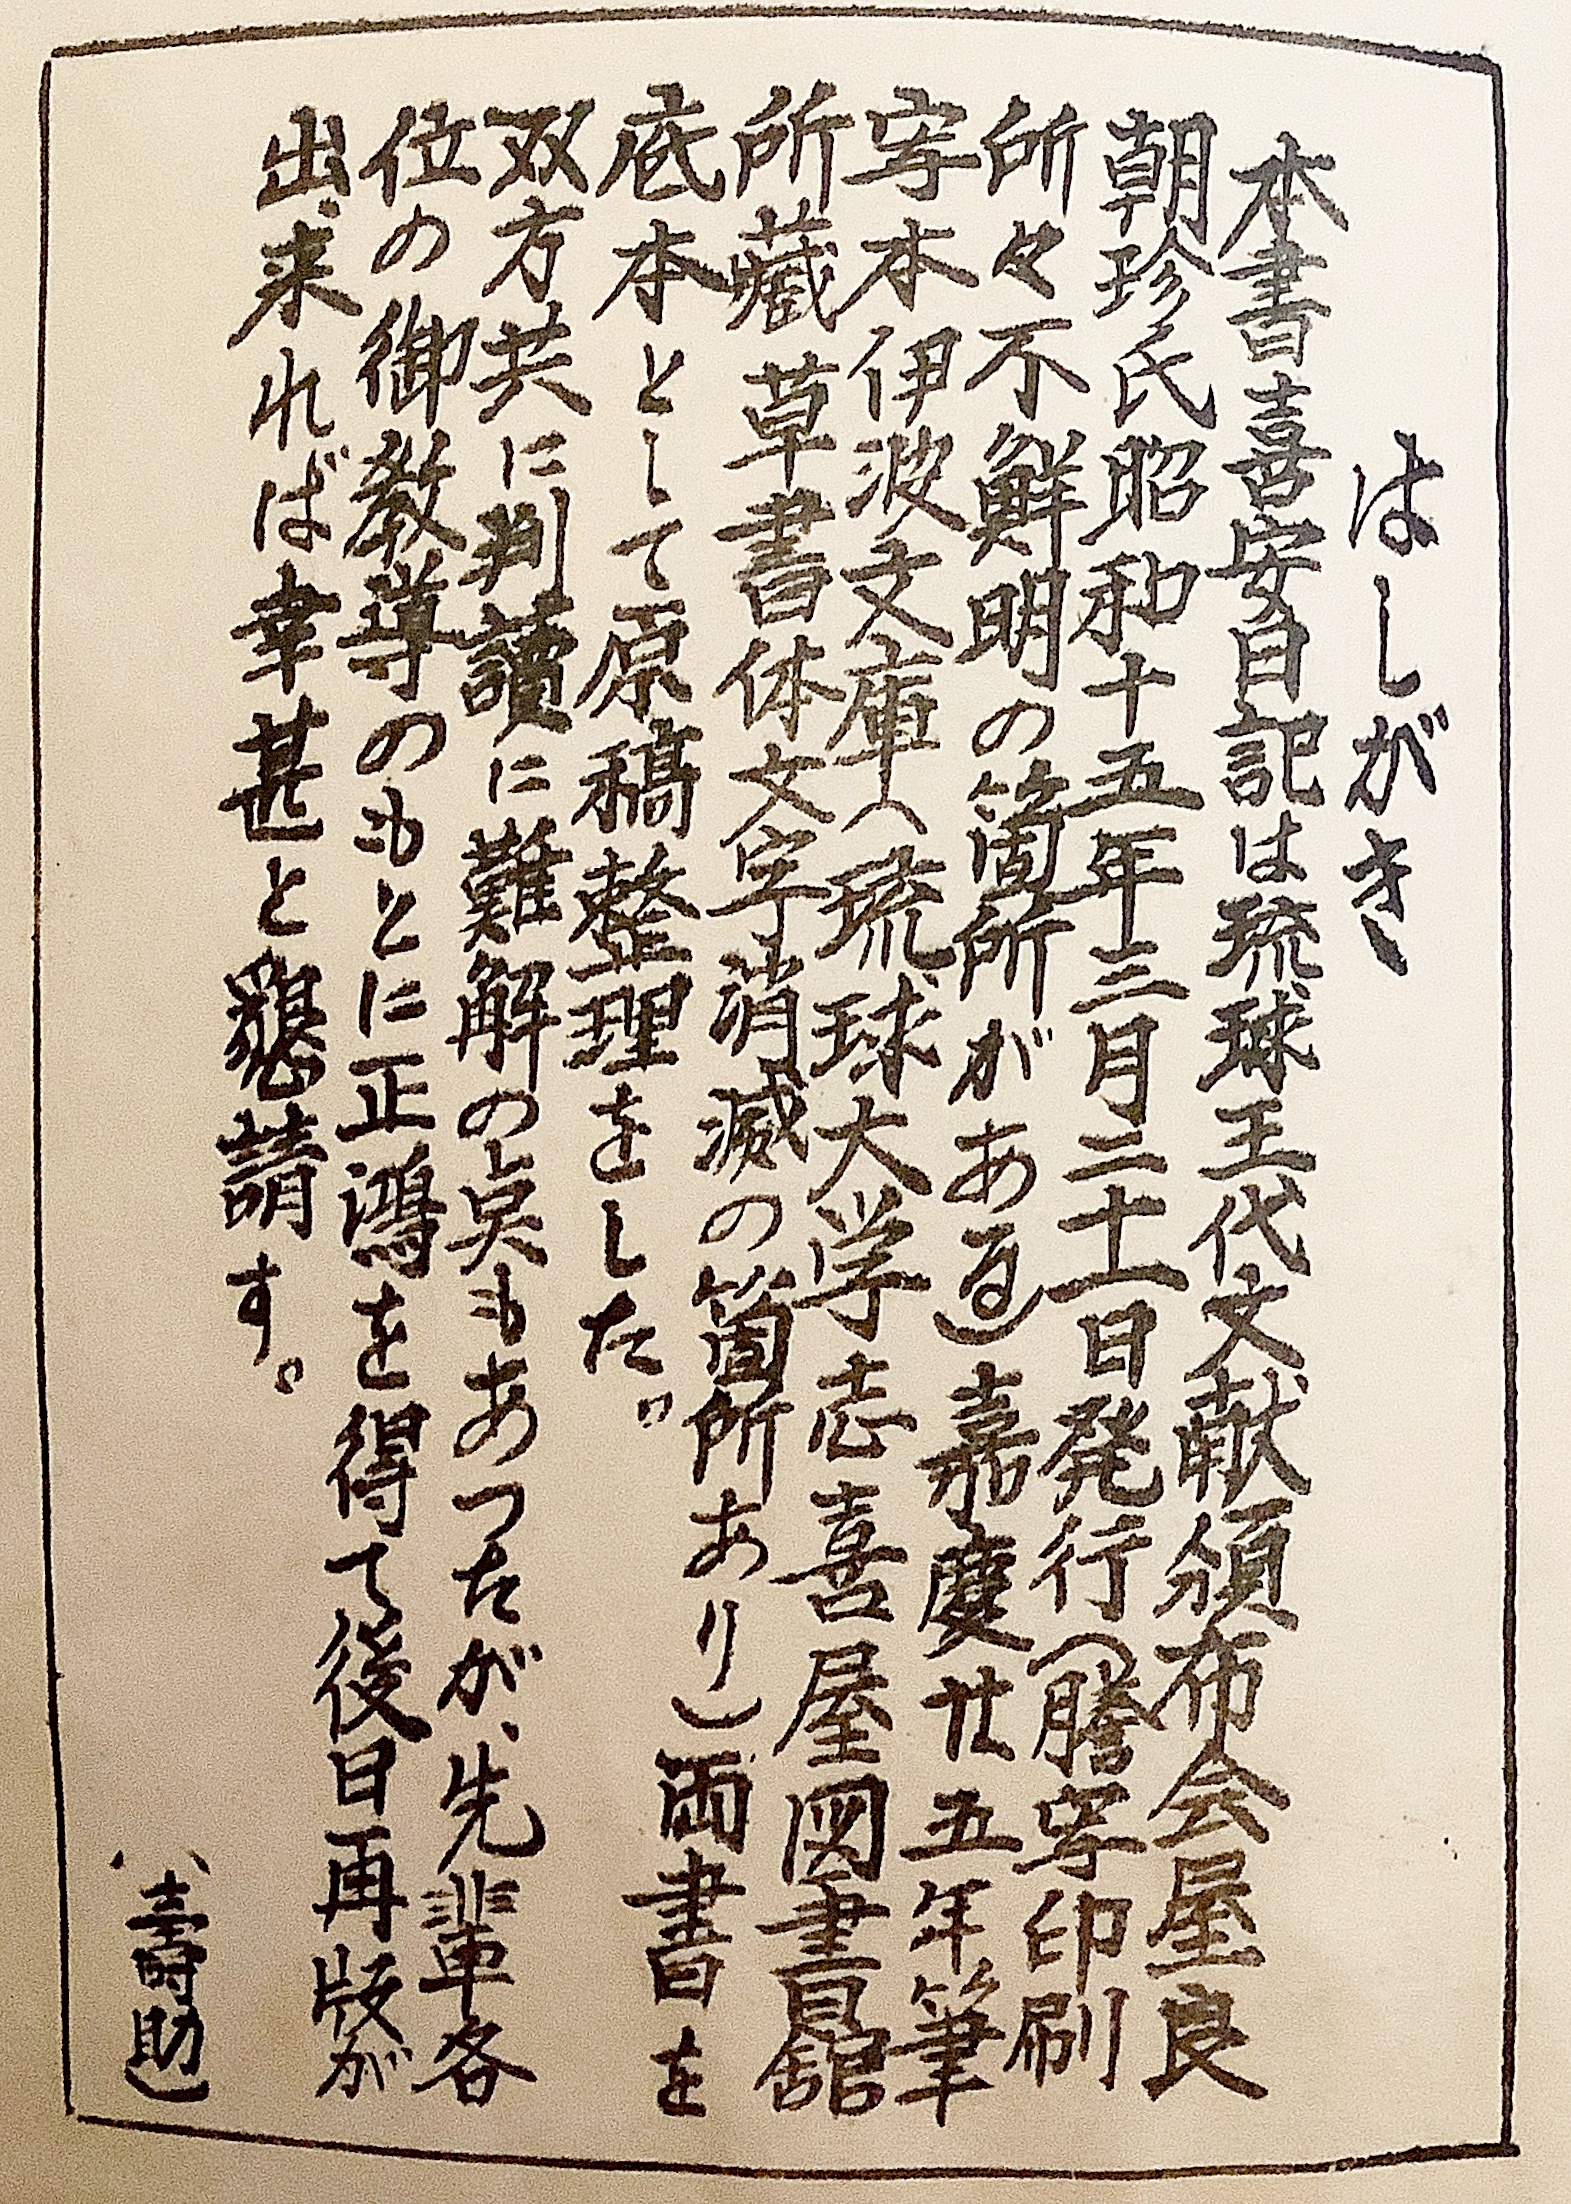 はしがき
本書喜安日記は琉球王代文献頒布会屋良
朝珍氏昭和十五年三月二十一日発行(謄写印刷
所々不鮮明の箇所がある)嘉慶廿五年筆
写本伊波文庫(琉球大学志喜屋図書舘
所藏草書体文字消滅の箇所あり)両書を
底本として原稿整理をした。
双方共に判讀に難解の点もあつたが、先輩各
位の御教導のもとに正鴻を得て後日再版が
出来れば幸甚と懇請す。
(壽助)